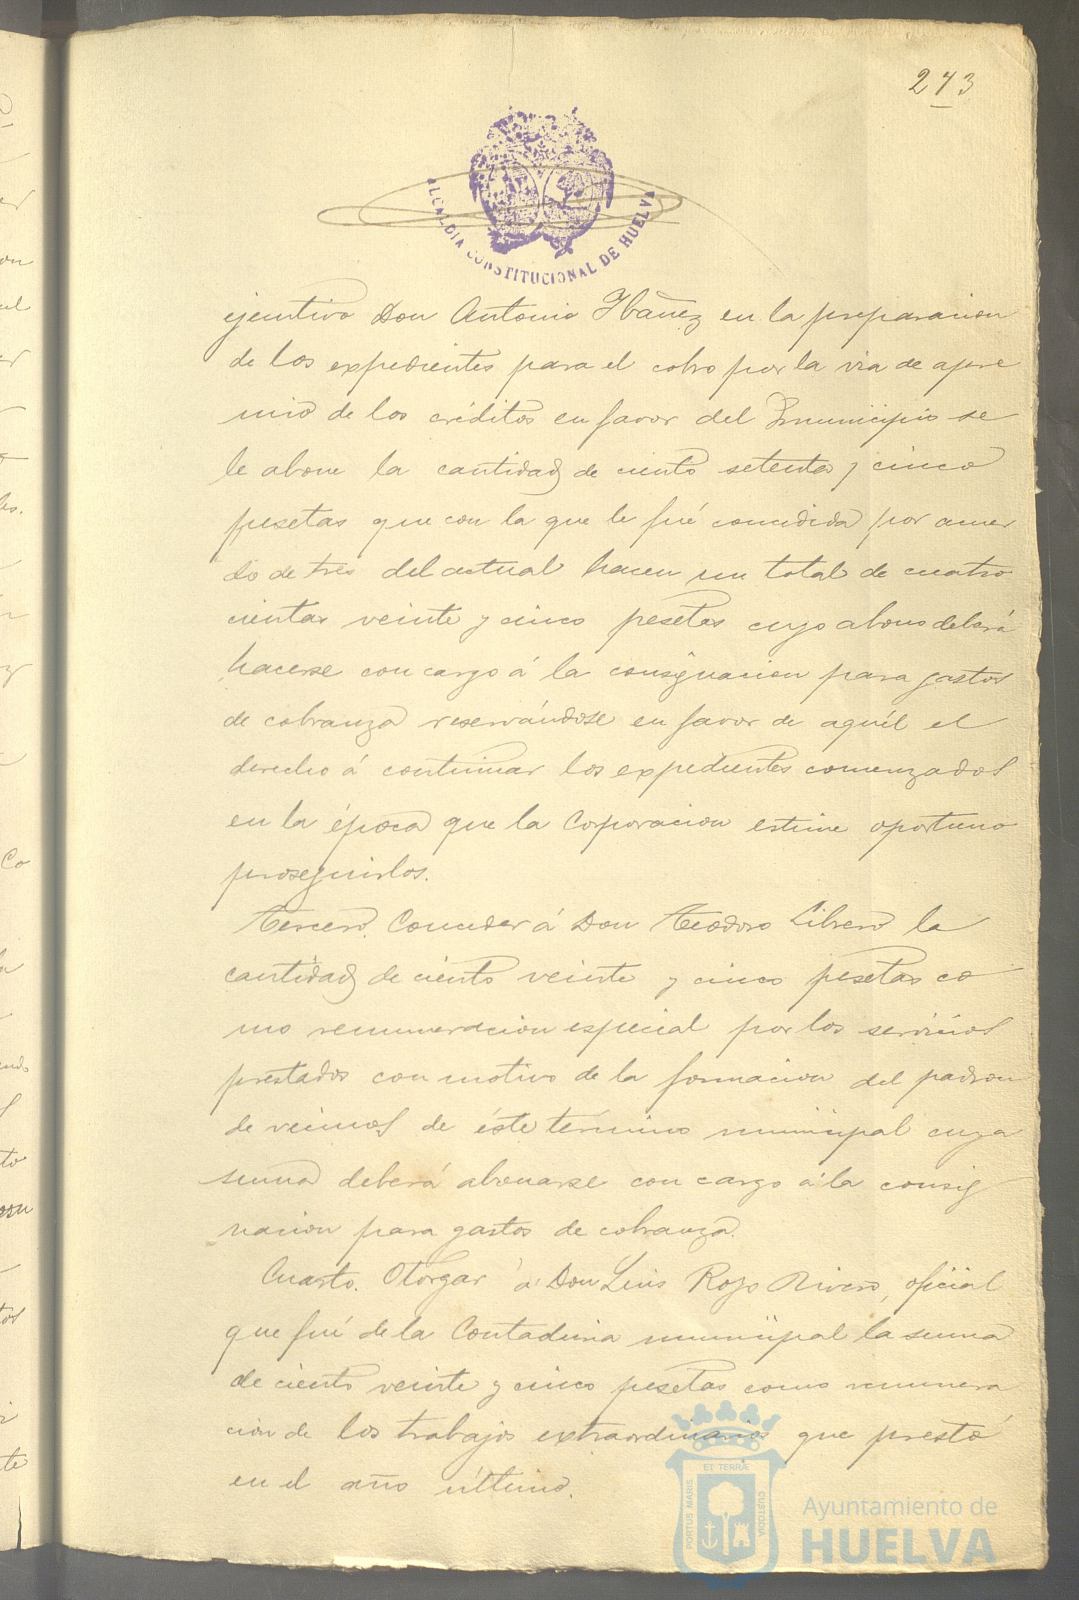 273
ALCALDIA CONSTITUCIONAL DE HUELVA
ejecutivo Don Antonio Ibañez en la preparacion
de los expedientes para el cobro por la via de apre
mio de los créditos en favor del municipio se
le abone la cantidad de ciento setenta y cinco
pesetas que con la que le fué concedida por acuer
do de tres del actual hacen un total de cuatro
cientas veinte y cinco pesetas cuyo abono deberá
hacerse con cargo á la consignacion para gastos
de cobranza reservándose en favor de aquél el
derecho á continuar los expedientes comenzados
en la época que la Corporacion estime oportuno
proseguirlos.
Tercero. Conceder á Don Teodoro Librero la
cantidad de ciento veinte y cinco pesetas co
mo remuneracion especial por los servicios
prestados con motivo de la formacion del padron
de vecinos de éste termino municipal cuya
suma deberá abonarse con cargo á la consig
nacion para gastos de cobranza.
Cuarto. Otorgar á Don Luis Rojo Rivero, oficial
que fué de la Contaduria municipal la suma
de ciento veinte y cinco pesetas como remunera
cion de los trabajos extraordinarios que prestó
en el año último.
PORTUS MARIS
ET TERRÆ
CUSTODIA
Ayuntamiento de
HUELVA